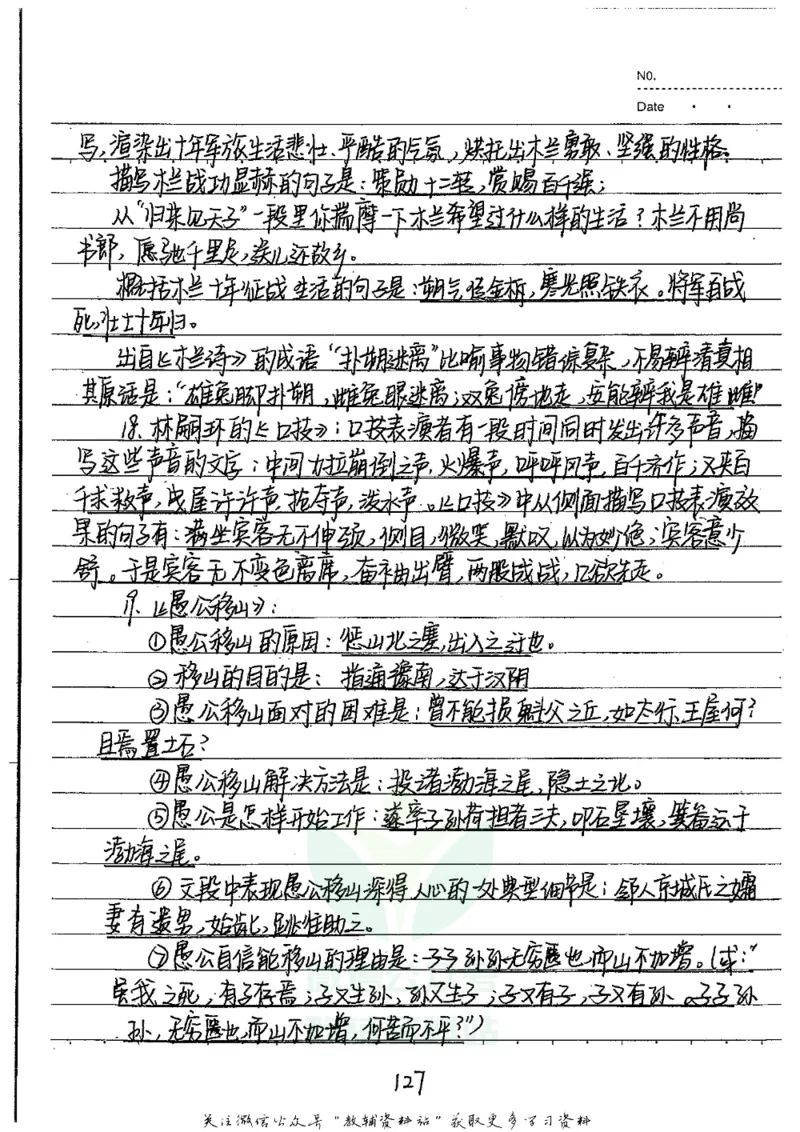 NO.
Date
写,渲染出十年军旅生活悲壮、严酷的气氛,烘托出木兰勇敢、坚强的性格;
描写木兰战功显赫的句子是:策勋十二转,赏赐百千强;
从“归来见天子”一段里你揣摩一下木兰希望过什么样的生活?木兰不用尚
书郎,愿驰千里足,送儿还故乡。
概括木兰十年征战生活的句子是:朔气传金柝,寒光照铁衣。将军百战
死,壮士十年归。
出自《木兰诗》的成语“扑朔迷离”比喻事物错综复杂,不易辨清真相
其原话是:“雄兔脚扑朔,雌兔眼迷离;双兔傍地走,安能辨我是雄雌!”
18. 林嗣环的《口技》:口技表演者有一段时间同时发出许多声音,描
写这些声音的文字:中间力拉崩倒之声,火爆声,呼呼风声,百千齐作;又夹百
千求救声,曳屋许许声,抢夺声,泼水声。《口技》中从侧面描写口技表演效
果的句子有:满坐宾客无不伸颈,侧目,微笑,默叹,以为妙绝;宾客意少
舒。于是宾客无不变色离席,奋袖出臂,两股战战,几欲先走。
19. 《愚公移山》:
①愚公移山的原因:惩山北之塞,出入之迂也。
②移山的目的是:指通豫南,达于汉阴
③愚公移山面对的困难是:曾不能损魁父之丘,如太行、王屋何?
且焉置土石?
④愚公移山解决方法是:投诸渤海之尾,隐土之北。
⑤愚公是怎样开始工作:遂率子孙荷担者三夫,叩石垦壤,箕畚运于
渤海之尾。
⑥文段中表现愚公移山深得人心的一处典型细节是:邻人京城氏之孀
妻有遗男,始龀,跳往助之。
⑦愚公自信能移山的理由是:子子孙孙无穷匮也,而山不加增。(或:“
虽我之死,有子存焉;子又生孙,孙又生子;子又有子,子又有孙。子子孙
孙,无穷匮也,而山不加增,何苦而不平?”)
127
关注微信公众号“教辅资料站”获取更多学习资料